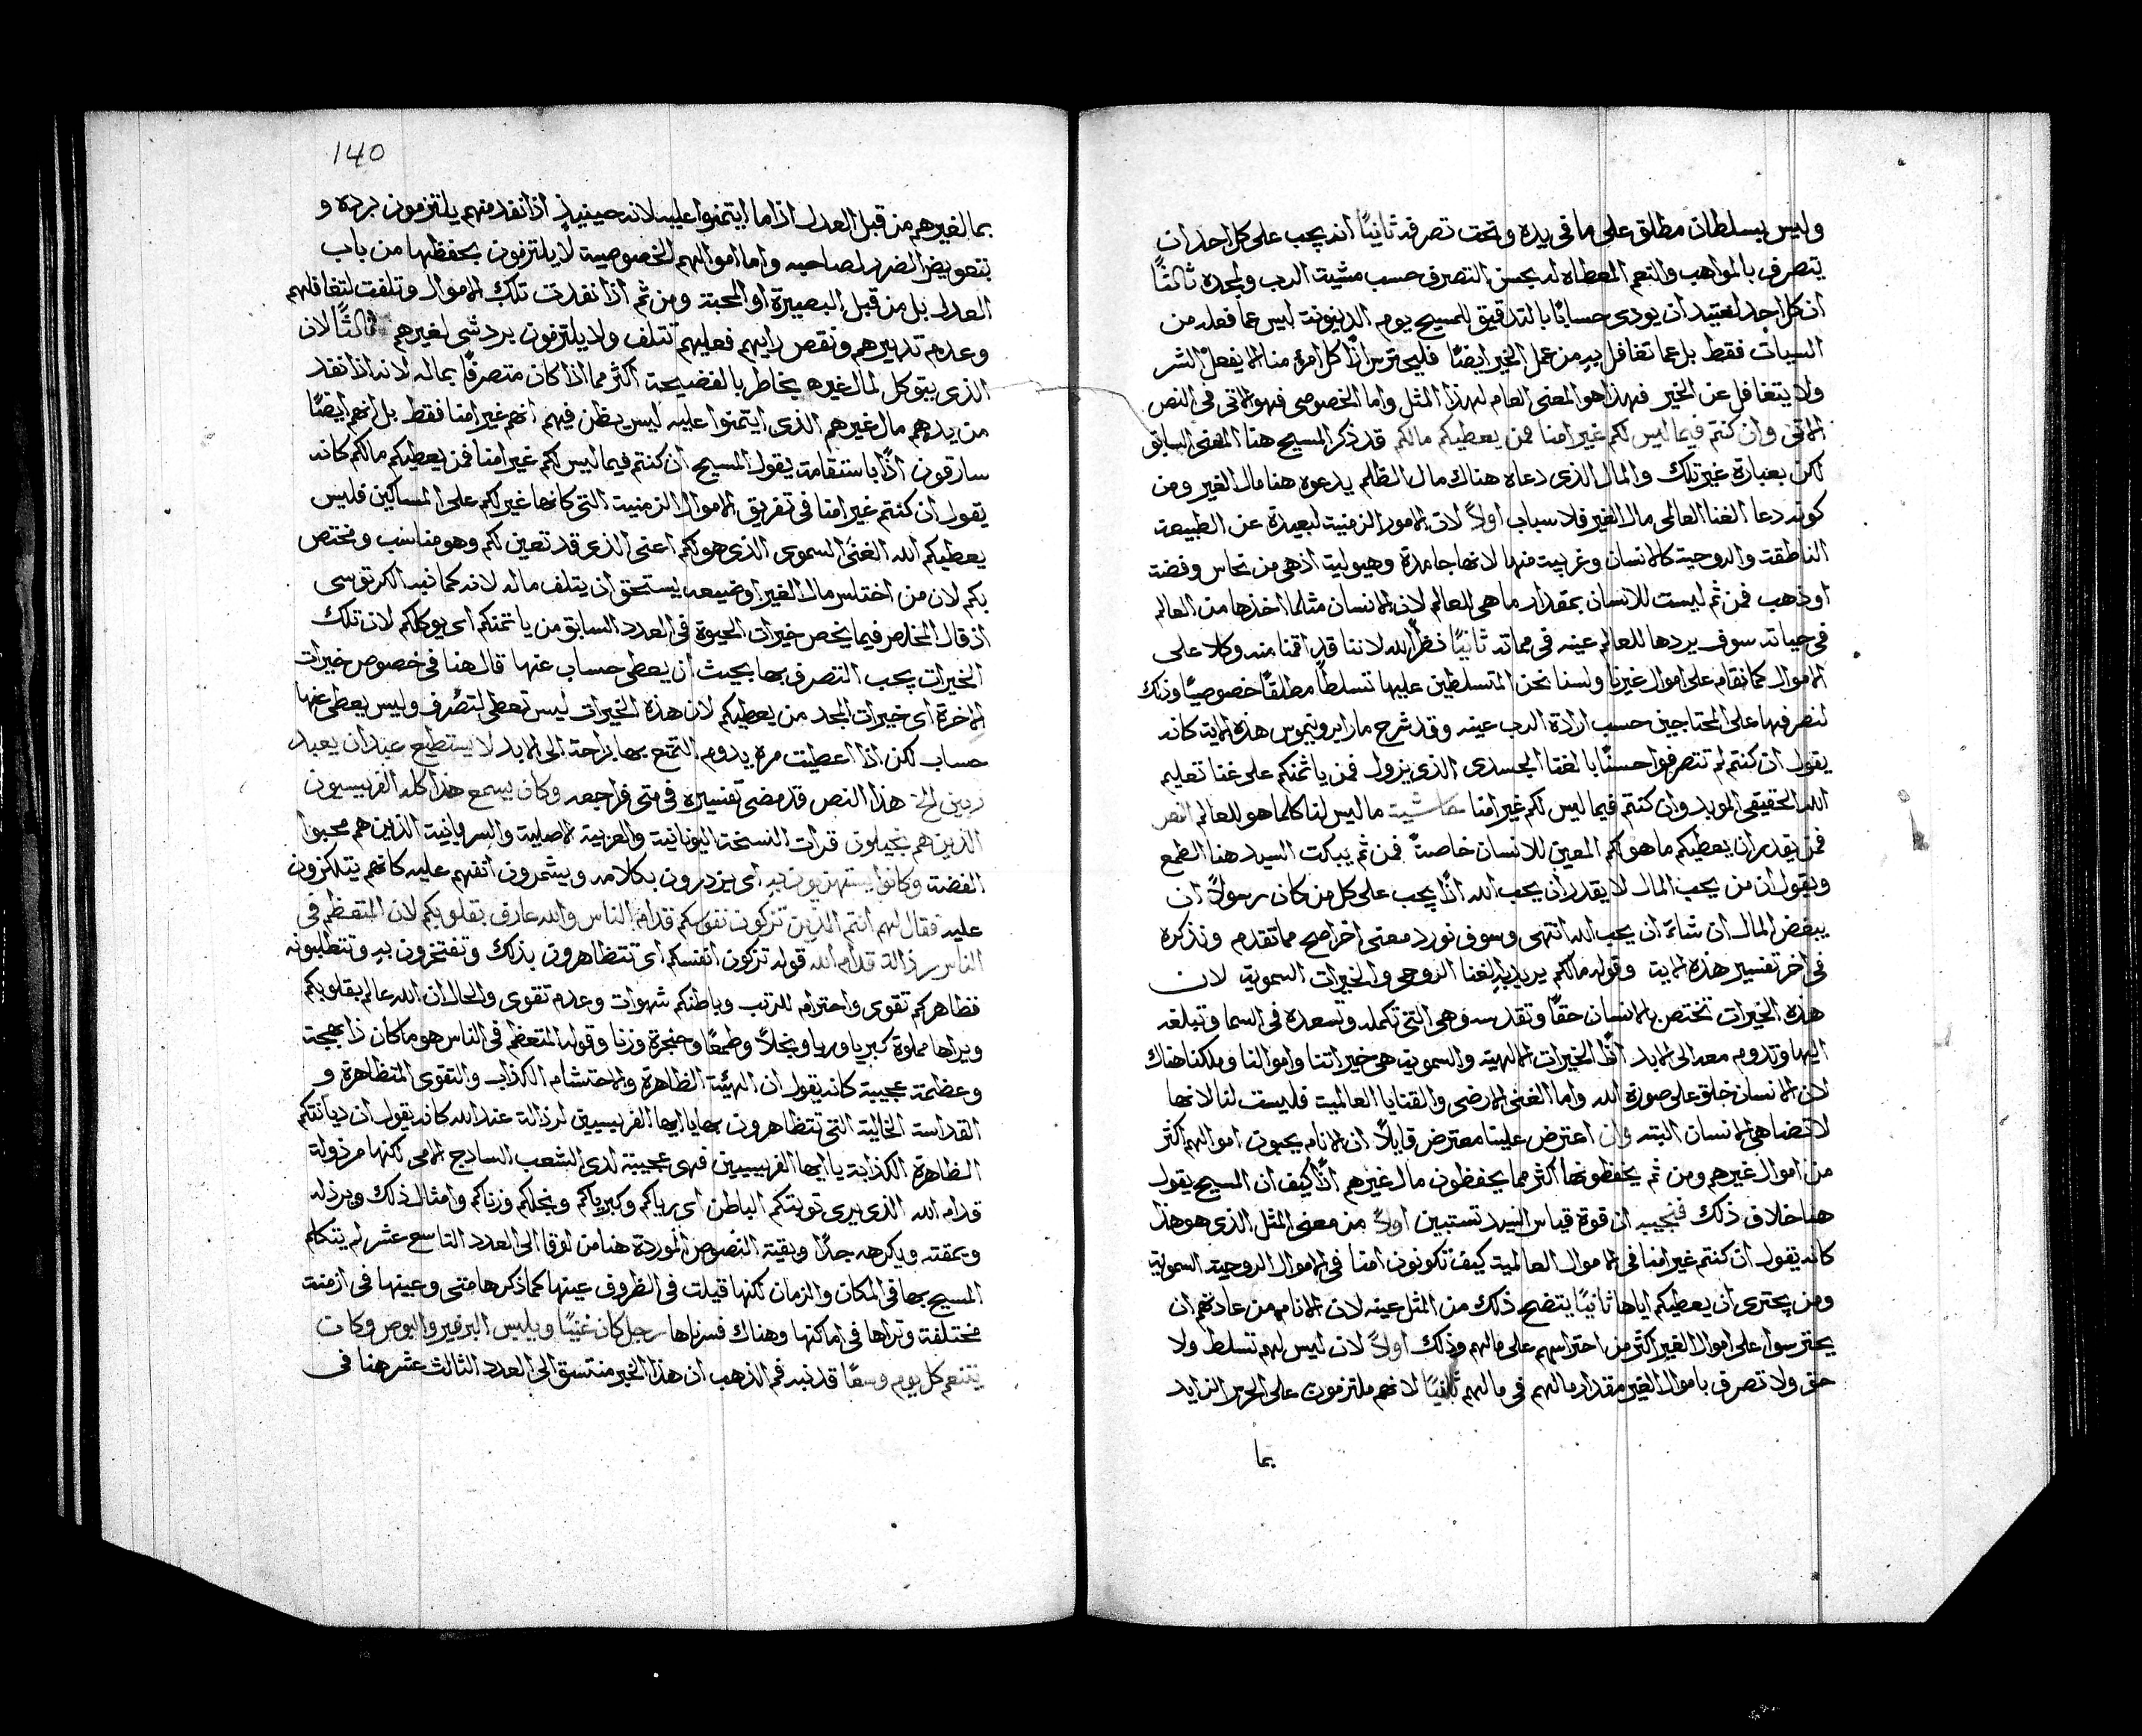 وليس بسلطان مطلق على ما في يده وتحت تصرفه ثانيًا انه يجب على كل احد ان
يتصرف بالمواهب والنعم المعطاه له بحسن التصرف حسب مشيت الرب ولمجده ثالثًا
ان كل احد لعتيد ان يودي حسابًا بالتدقيق للمسيح يوم الدينونة ليس عما فعله من
السيات فقط بل عما تغافل به من عمل الخير ايضًا فليحترس اذًا كل امرء منا الا يفعل الشر
ولا يتغافل عن الخير فهذا هو المعنى العام لهذا المثل واما الخصوصي فهو الاتي في النص
الاتي وان كنتم فيما ليس لكم غير امنا فمن يعطيكم مالكم قد ذكر المسيح هنا المعنى السابق
لكن بعبارة غير تلك والمال الذي دعاه هناك مال الظلم يدعوه هنا مال الغير ومن
كونه دعا الغنا العالمي مال الغير فلاسباب اولاً لان الامور الزمنية لبعيدة عن الطبيعة
الناطقة والروحية كالانسان وغريبة منها لانها جامدة وهيولية اذ هي من نحاس وفضة
او ذهب فمن ثم ليست للانسان بمقدار ما هي للعالم لان الانسان مثلما اخذها من العالم
في حياته سوف يردها للعالم عينه في مماته ثانيًا نظرًا لله لاننا قد اقمنا منه وكلا على
الاموال كما نقام على اموال غيرنا ولسنا نحن المتسلطين عليها تسلطًا مطلقًا خصوصيًا وذلك
لنصرفها على المحتاجين حسب ارادة الرب عينه وقد شرح مار ايرونيموس هذه الاية كانه
يقول ان كنتم لم تتصرفوا حسنًا بالغنا الجسدي الذي يزول فمن ياتمنكم على غنا تعليم
الله الحقيقي الموبد وان كنتم فيما ليس لكم غير امنا حاشية ما ليس لنا كلما هو للعالم النص
فمن يقدر ان يعطيكم ما هو لكم المعين للانسان خاصةً فمن ثم يبكت السيد هنا الطمع
ويقول ان من يحب المال لا يقدر ان يحب الله اذًا يجب على كل من كان رسولاً ان
يبغض المال ان شاء ان يحب الله انتهى وسوف نورد معنى اخر اصح مما تقدم ونذكره
في اخر تفسير هذه الاية وقوله مالكم يريد به الغنا الروحي والخيرات السموية لان
هذه الخيرات تختص بالانسان حقًا وتقدسه وهي التي تكمله وتسعده في السما وتبلغه
اليها وتدوم معه الى الابد اذًا الخيرات الالهية والسموية هي خيراتنا واموالنا وملكنا هناك
لان الانسان خلق على صورة الله واما الغنى الارضي والقنايا العالمية فليست لنا لانها
لا تضاهي الانسان البتة وان اعترض علينا معترض قايلاً ان الانام يحبون اموالهم اكثر
من اموال غيرهم ومن ثم يحفظونها اكثر مما يحفظون مال غيرهم اذًا كيف ان المسيح يقول
هنا خلاف ذلك فنجيبه ان قوة قياس السيد تستبين اولاً من معنى المثل الذي هو هذا
كانه يقول ان كنتم غير امنا في الاموال العالمية كيف تكونون امنا في الاموال الروحية السموية
ومن يجتري ان يعطيكم اياها ثانيًا يتضح ذلك من المثل عينه لان الانام من عادتهم ان
يحترسوا على اموال الغير اكثر من احتراسهم على مالهم وذلك اولاً لان ليس لهم تسلط ولا
حق ولا تصرف باموال الغير مقدار مالهم في مالهم ثانيًا لانهم ملتزمون على الحرس الزايد
بما
140
بما لغيرهم من قبل العدل اذا ما ايتمنوا عليه لانه حينيذٍ اذا نقد منهم يلتزمون برده و
بتعويض الضرر لصاحبه واما اموالهم الخصوصية لا يلتزمون بحفظها من باب
العدل بل من قبل البصيرة او المحبة ومن ثم اذا نقدت تلك الاموال وتلفت لتغافلهم
وعدم تدبيرهم ونقص رايهم فعليهم تتلف ولا يلتزمون برد شي لغيرهم ثالثًا لان
الذي يتوكل لمال غيره يخاطر بالفضيحة اكثر مما اذا كان متصرفًا بماله لانه اذا نقد
من يدهم مال غيرهم الذي ايتمنوا عليه ليس يظن فيهم انهم غير امنا فقط بل انهم ايضًا
سارقون اذًا باستقامة يقول المسيح ان كنتم فيما ليس لكم غير امنا فمن يعطيكم مالكم كانه
يقول ان كنتم غير امنا في تفريق الاموال الزمنية التي كانها غير لكم على المساكين فليس
يعطيكم الله الغنى السموي الذي هو لكم اعني الذي قد تعين لكم وهو مناسب ومختص
بكم لان من اختلس مال الغير او ضيعه يستحق ان يتلف ماله لانه كما نبه الكرتوسي
اذ قال المخلص فيما يخص خيرات الحيوة في العدد السابق من ياتمنكم اي يوكلكم لان تلك
الخيرات يجب التصرف بها بحيث ان يعطى حساب عنها قال هنا في خصوص خيرات
الاخرة اي خيرات المجد من يعطيكم لان هذه الخيرات ليس تعطى لتصرف وليس يعطى عنها
حساب لكن اذا اعطيت مرة يدوم التمتع بها براحة الى الابد لا يستطيع عبد ان يعبد
ربين الخ هذا النص قد مضى تفسيره في متى فراجعه وكان يسمع هذا كله الفريسيون
الذين هم بخيلون قرات النسخة اليونانية والعربية الاصلية والسريانية الذين هم محبوا
الفضة وكانوا يستهزيون به اي يزدرون بكلامه ويشمرون انفهم عليه كانهم يتلكزون
عليه فقال لهم انتم الذين تزكون نفوسكم قدام الناس والله عارف بقلوبكم لان المتعظم في
الناس رذالة قدام الله قوله تزكون انفسكم اي تتظاهرون بذلك وتفتخرون به وتتطلبونه
فظاهركم تقوى واحترام للرتب وباطنكم شهوات وعدم تقوى والحال ان الله عالم بقلوبكم
ويراها مملوة كبريا وريا وبخلاً وطمعًا وحنجرة وزنا وقوله المتعظم في الناس هو ما كان ذا بهجة
وعظمة عجيبة كانه يقول ان الهيئة الظاهرة والاحتشام الكذاب والتقوى المتظاهرة و
القداسة الخالية التي تتظاهرون بها يا ايها الفريسيين لرذالة عند الله كانه يقول ان ديانتكم
الظاهرة الكذابة يا ايها الفريسيين فهي عجيبة لدى الشعب الساذج الامي لكنها مرذولة
قدام الله الذي يرى تويتكم الباطن اي رياكم وكبرياكم وبخلكم وزناكم وامثال ذلك ويرذله
ويمقته ويكرهه جدًا وبقية النصوص الموردة هنا من لوقا الى العدد التاسع عشر لم يتكلم
المسيح بها في المكان والزمان لكنها قيلت في الظروف عينها كما ذكرها متى وعينها في ازمنة
مختلفة وتراها في اماكنها وهناك فسرناها رجل كان غنيًا ويلبس البرفير والبوص وكان
يتنعم كل يوم وسعًا قد نبه فم الذهب ان هذا الخبر منتسق الى العدد الثالث عشر هنا في